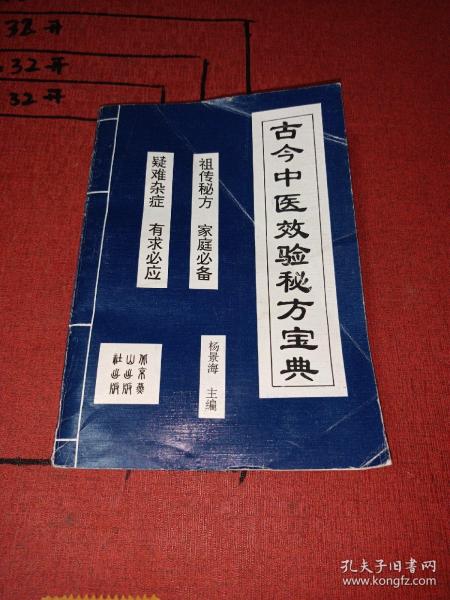 32开
32开
32开
古今中医效验秘方宝典
祖传秘方 家庭必备
疑难杂症 有求必应
杨景海 主编
北京燕
山出版
社出版
孔夫子旧书网
www.kongfz.com